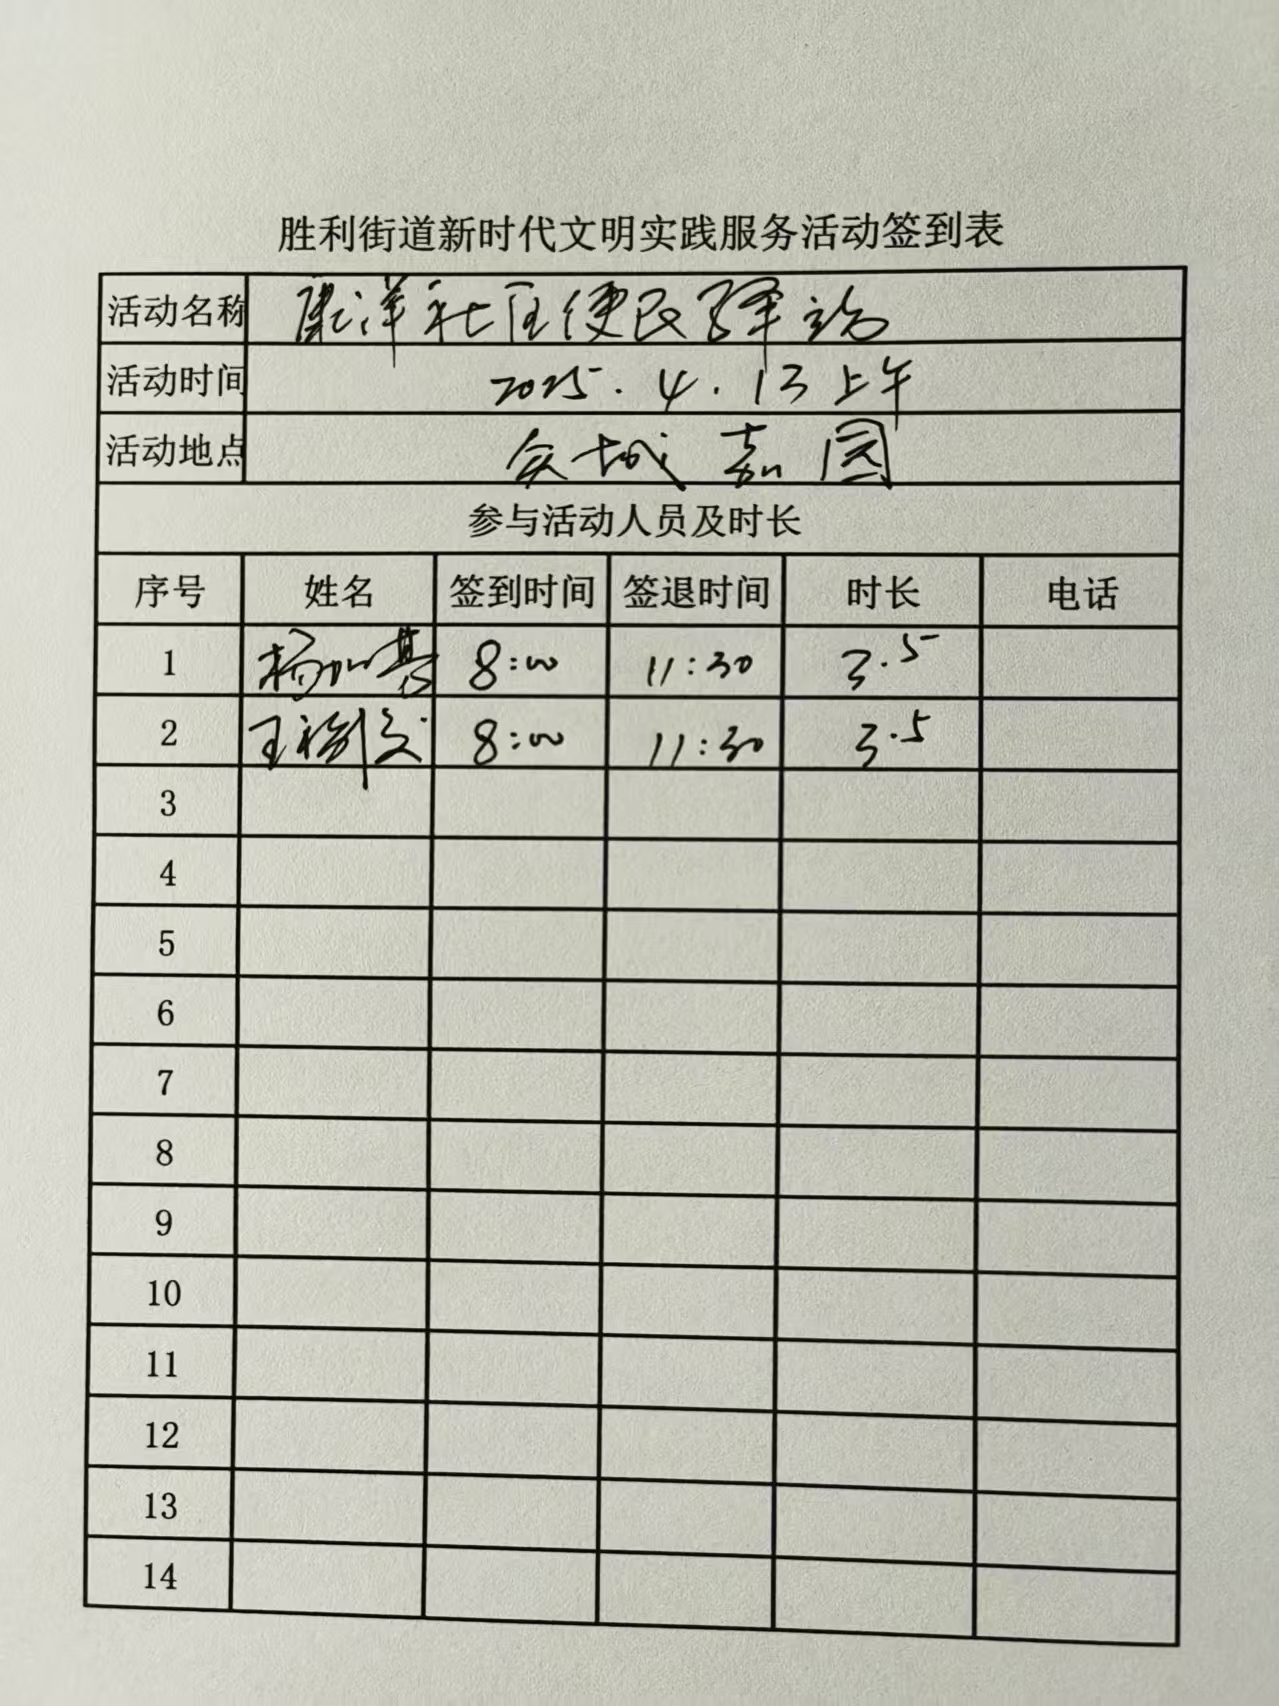 胜利街道新时代文明实践服务活动签到表
活动名称 洋社区便民驿站
活动时间 2025.4.13上午
活动地点 城嘉园
参与活动人员及时长
序号 姓名 签到时间 签退时间 时长 电话
1 杨 8:00 11:30 3.5
2 王 8:00 11:30 3.5
3
4
5
6
7
8
9
10
11
12
13
14